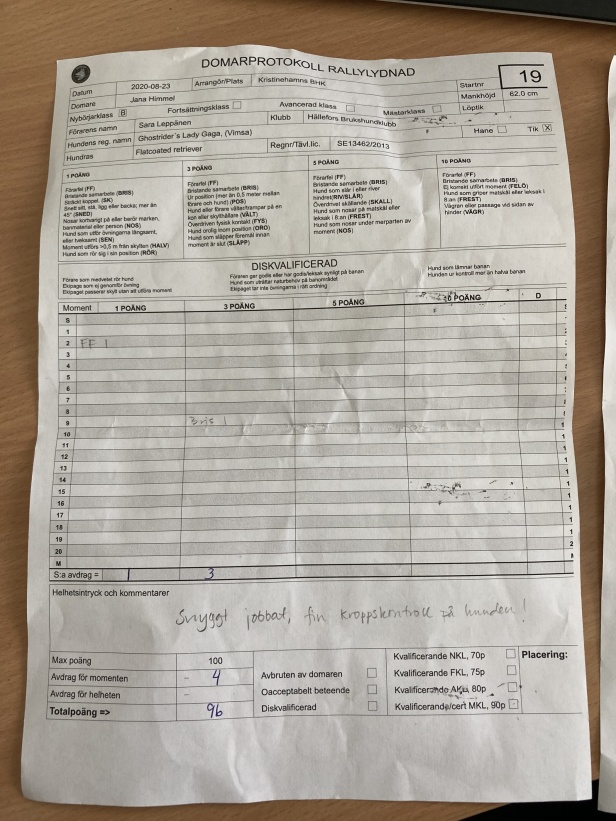 DOMARPROTOKOLL RALLYLYDNAD
Datum 2020-08-23 Arrangör/Plats Kristinehamns BHK Startnr 19
Domare Jana Himmel Mankhöjd 62.0 cm
Nybörjarklass B Fortsättningsklass Avancerad klass Mästarklass Löptik
Förarens namn Sara Leppänen Klubb Hällefors Brukshundklubb
Hundens reg. namn Ghostrider's Lady Gaga, (Vimsa) Hane Tik X
Hundras Flatcoated retriever Regnr/Tävl.lic. SE13462/2013
1 POÄNG
Förarfel (FF)
Bristande samarbete (BRIS)
Sträckt koppel. (SK)
Snett sitt, stå, ligg eller backa; mer än
45° (SNED)
Nosar kortvarigt på eller berör marken,
banmaterial eller person (NOS)
Hund som utför övningarna långsamt,
eller tveksamt (SEN)
Moment utförs >0,5 m från skylten (HALV)
Hund som rör sig i sin position (RÖR)
3 POÄNG
Förarfel (FF)
Bristande samarbete (BRIS)
Ur position (mer än 0,5 meter mellan
förare och hund) (POS)
Hund eller förare välter/trampar på en
kon eller skylthållare (VÄLT)
Överdriven fysisk kontakt (FYS)
Hund orolig inom position (ORO)
Hund som släpper föremål innan
moment är slut (SLÄPP)
5 POÄNG
Förarfel (FF)
Bristande samarbete (BRIS)
Hund som slår i eller river
hindret(RIV/SLÅR)
Överdrivet skällande (SKALL)
Hund som nosar på matskål eller
leksak i 8:an (FREST)
Hund som nosar under merparten av
moment (NOS)
10 POÄNG
Förarfel (FF)
Bristande samarbete (BRIS)
Ej korrekt utfört moment (FELÖ)
Hund som griper matskål eller leksak i
8:an (FREST)
Vägran eller passage vid sidan av
hinder (VÄGR)
DISKVALIFICERAD
Förare som medvetet rör hund
Ekipage som ej genomför övning
Ekipaget passerar skylt utan att utföra moment
Föraren ger godis eller har godis/leksak synligt på banan
Hund som uträttar naturbehov på banområdet
Ekipaget tar inte övningarna i rätt ordning
Hund som lämnar banan
Hunden ur kontroll mer än halva banan
Moment 1 POÄNG 3 POÄNG 5 POÄNG 10 POÄNG D
S
1
2 FF 1
3
4
5
6
7
8
9 Bris 1
10
11
12
13
14
15
16
17
18
19
20
M
S:a avdrag = 1 3
Helhetsintryck och kommentarer
Snyggt jobbat, fin kroppskontroll på hunden!
Max poäng 100
Avdrag för momenten - 4
Avdrag för helheten -
Totalpoäng => 96
Avbruten av domaren
Oacceptabelt beteende
Diskvalificerad
Kvalificerande NKL, 70p
Kvalificerande FKL, 75p
Kvalificerande AKL, 80p
Kvalificerande/cert MKL, 90p
Placering: